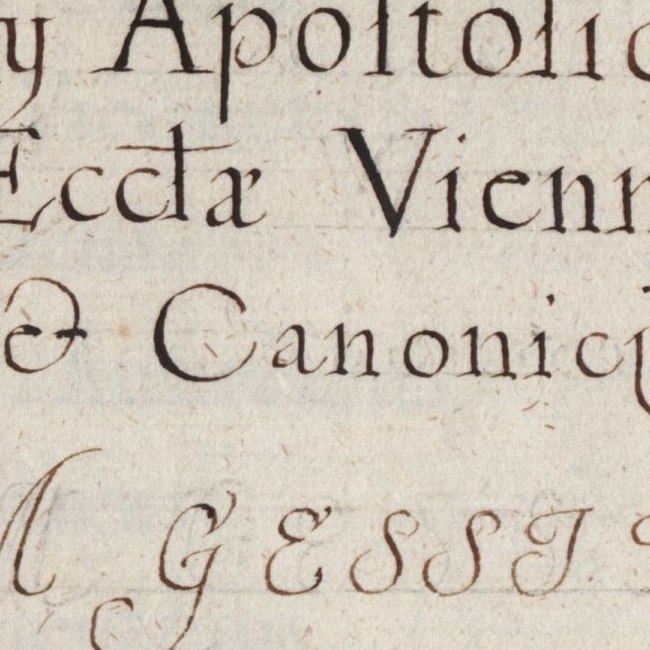 y Apoſtolic
Eccłæ Vienn
& Canonicij
M GESSI